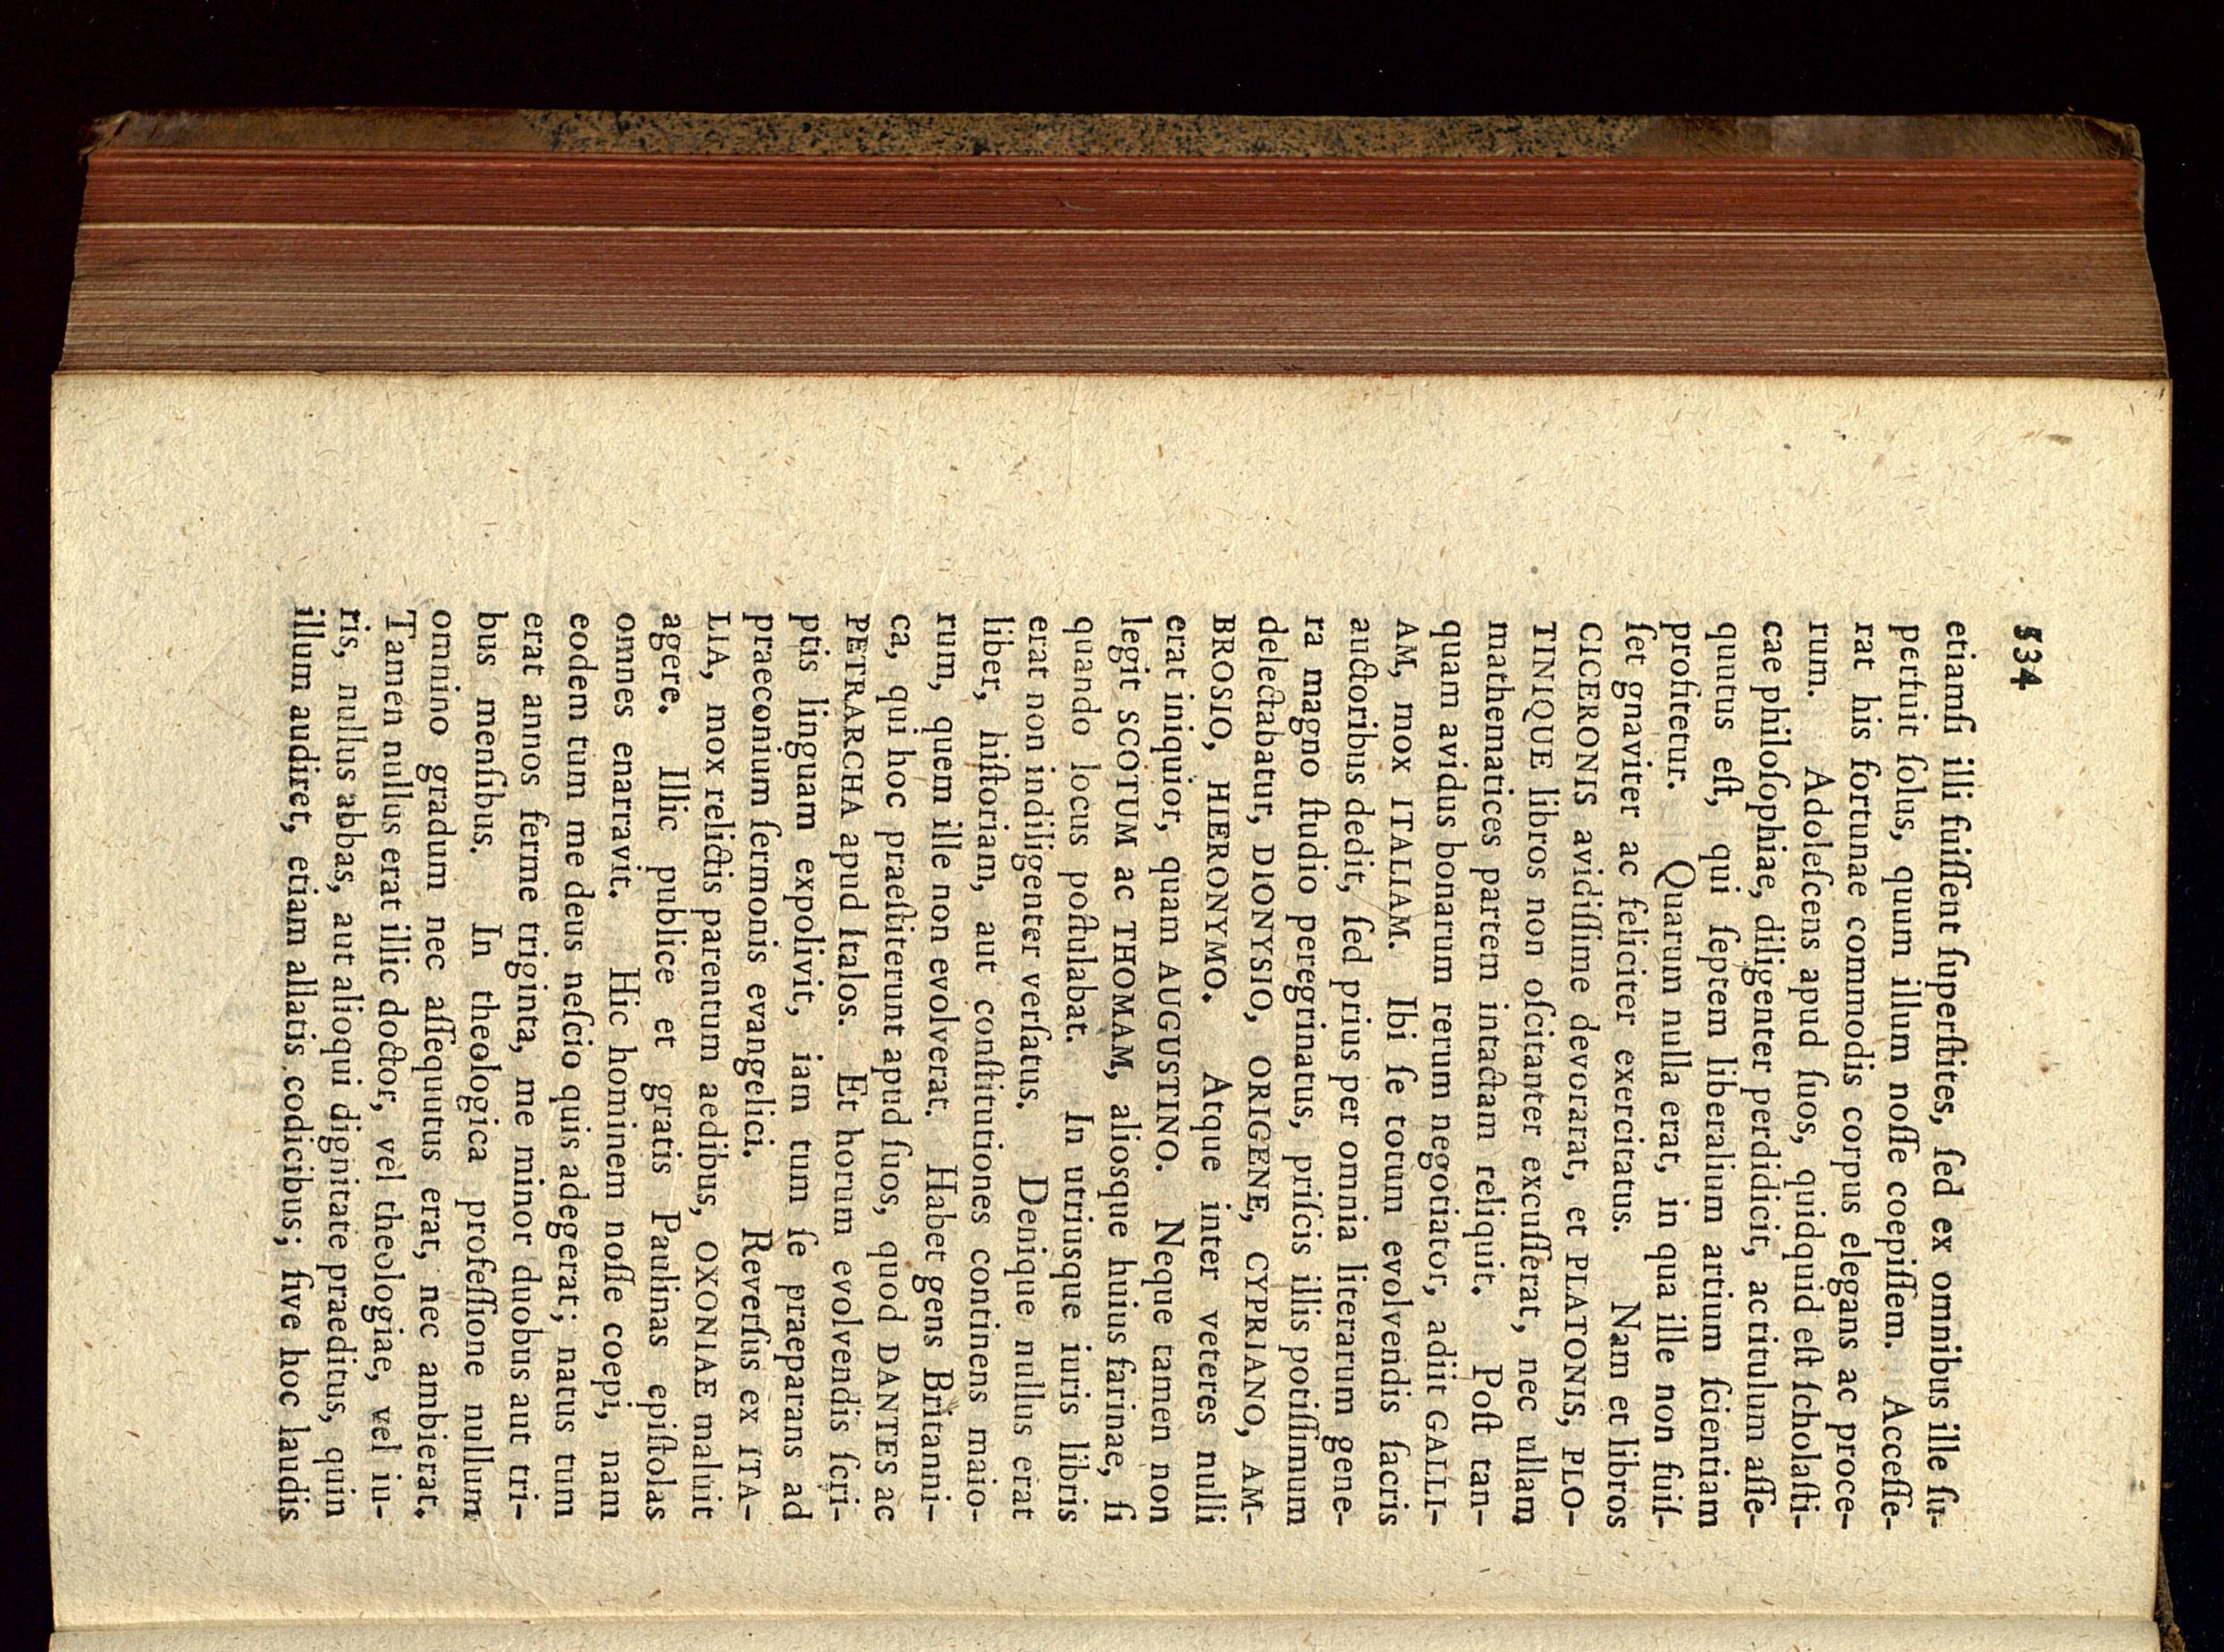 534
etiamſi illi fuiſſent ſuperſtites, ſed ex omnibus ille ſu-
perfuit ſolus, quum illum noſſe coepiſſem. Acceſſe-
rat his fortunae commodis corpus elegans ac proce-
rum. Adoleſcens apud ſuos, quidquid eſt ſcholaſti-
cae philoſophiae, diligenter perdidicit, ac titulum aſſe-
quutus eſt, qui ſeptem liberalium artium ſcientiam
profitetur. Quarum nulla erat, in qua ille non fuiſ-
ſet gnaviter ac feliciter exercitatus. Nam et libros
CICERONIS avidiſſime devorarat, et PLATONIS, PLO-
TINIQUE libros non oſcitanter excuſſerat, nec ullam
mathematices partem intactam reliquit. Poſt tan-
quam avidus bonarum rerum negotiator, adiit GALLI-
AM, mox ITALIAM. Ibi ſe totum evolvendis ſacris
auctoribus dedit, ſed prius per omnia literarum gene-
ra magno ſtudio peregrinatus, priſcis illis potiſſimum
delectabatur, DIONYSIO, ORIGENE, CYPRIANO, AM-
BROSIO, HIERONYMO. Atque inter veteres nulli
erat iniquior, quam AUGUSTINO. Neque tamen non
legit SCOTUM ac THOMAM, aliosque huius farinae, ſi
quando locus poſtulabat. In utriusque iuris libris
erat non indiligenter verſatus. Denique nullus erat
liber, hiſtoriam, aut conſtitutiones continens maio-
rum, quem ille non evolverat. Habet gens Britanni-
ca, qui hoc praeſtiterunt apud ſuos, quod DANTES ac
PETRARCHA apud Italos. Et horum evolvendis ſcri-
ptis linguam expolivit, iam tum ſe praeparans ad
praeconium ſermonis evangelici. Reverſus ex ITA-
LIA, mox relictis parentum aedibus, OXONIAE maluit
agere. Illic publice et gratis Paulinas epiſtolas
omnes enarravit. Hic hominem noſſe coepi, nam
eodem tum me deus neſcio quis adegerat; natus tum
erat annos ferme triginta, me minor duobus aut tri-
bus menſibus. In theologica profeſſione nullum
omnino gradum nec aſſequutus erat, nec ambierat.
Tamen nullus erat illic doctor, vel theologiae, vel iu-
ris, nullus abbas, aut alioqui dignitate praeditus, quin
illum audiret, etiam allatis codicibus; ſive hoc laudis